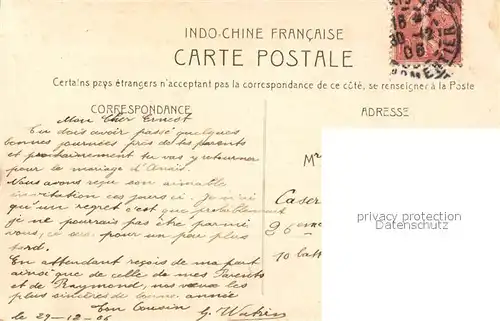 INDO-CHINE FRANÇAISE
CARTE POSTALE
Certains pays étrangers n'acceptant pas la correspondance de ce côté, se renseigner à la Poste
CORRESPONDANCE
ADRESSE
Mon Cher Ernest
Tu dois avoir passé quelques
bonnes journées près de tes parents
et prochainement tu vas y retourner
pour le mariage d'Anaïs.
Nous avons reçu son aimable
invitation ces jours ci. Je n'ai
qu'un regret c'est que probablement
je ne pourrais pas être parmi
vous, ce sera pour un peu plus
tard.
En attendant reçois de ma part
ainsi que de celle de mes Parents
et de Raymond, nos vœux les
plus sincères de bonne année
Ton Cousin G.
le 29-12-06
Mr
Caser
26eme
10 batt
privacy protection
Datenschutz
18
30 12
06